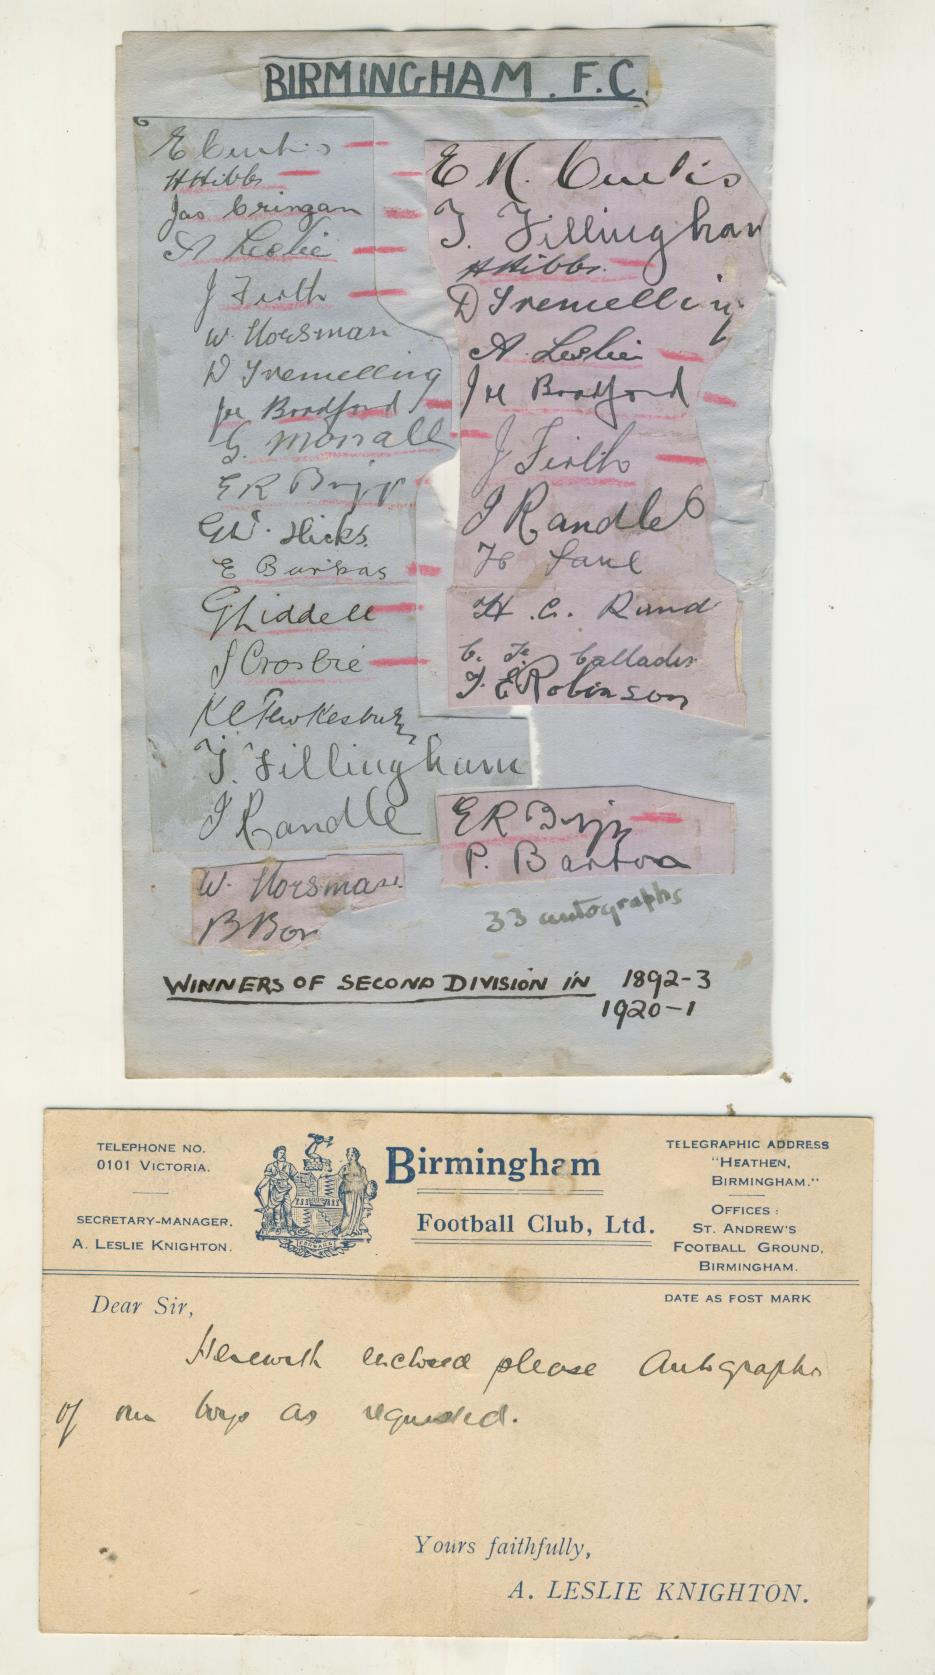 BIRMINGHAM. F.C.
E Curtis
H Hibbs
Jas Cringan
A Leslie
J Firth
W. Horsman
D Tremelling
Jn Bradford
G. Morrall
E R Brigg
Geo. Hicks.
E Barkas
G Liddell
J Crosbie
K C Tewkesbury
T. Fillingham
J Randle
W. Horsman.
B Bor
E N. Curtis
T. Fillingham
H Hibbs.
D Tremelling
A. Leslie
Jn Bradford
J Firth
J Randle
H C. Rand
T. E Robinson
E R Brigg
P. Barton
33 autographs
WINNERS OF SECOND DIVISION IN 1892-3
1920-1
TELEPHONE NO.
0101 VICTORIA.
SECRETARY-MANAGER.
A. LESLIE KNIGHTON.
FORWARD
Birmingham
Football Club, Ltd.
TELEGRAPHIC ADDRESS
"HEATHEN,
BIRMINGHAM."
OFFICES:
ST. ANDREW'S
FOOTBALL GROUND,
BIRMINGHAM.
DATE AS POST MARK
Dear Sir,
Herewith enclosed please Autographs
of our boys as requested.
Yours faithfully,
A. LESLIE KNIGHTON.